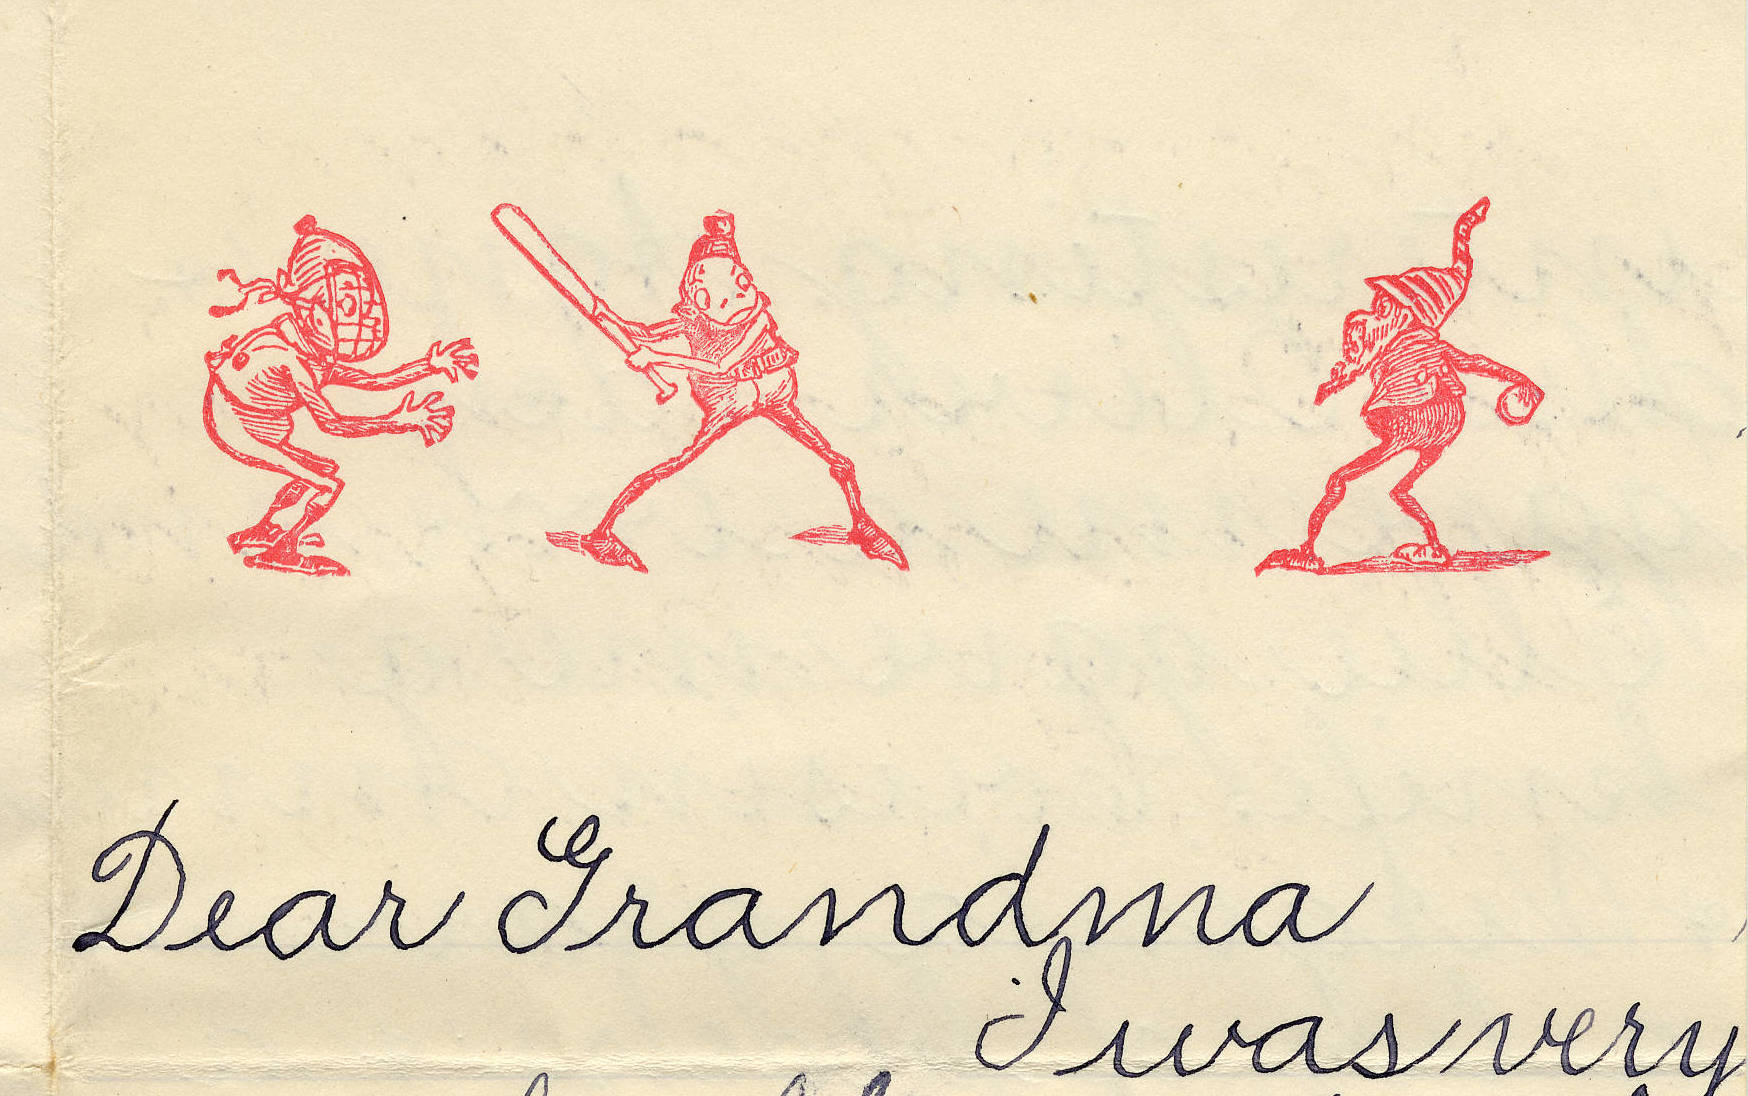 Dear Grandma
I was very